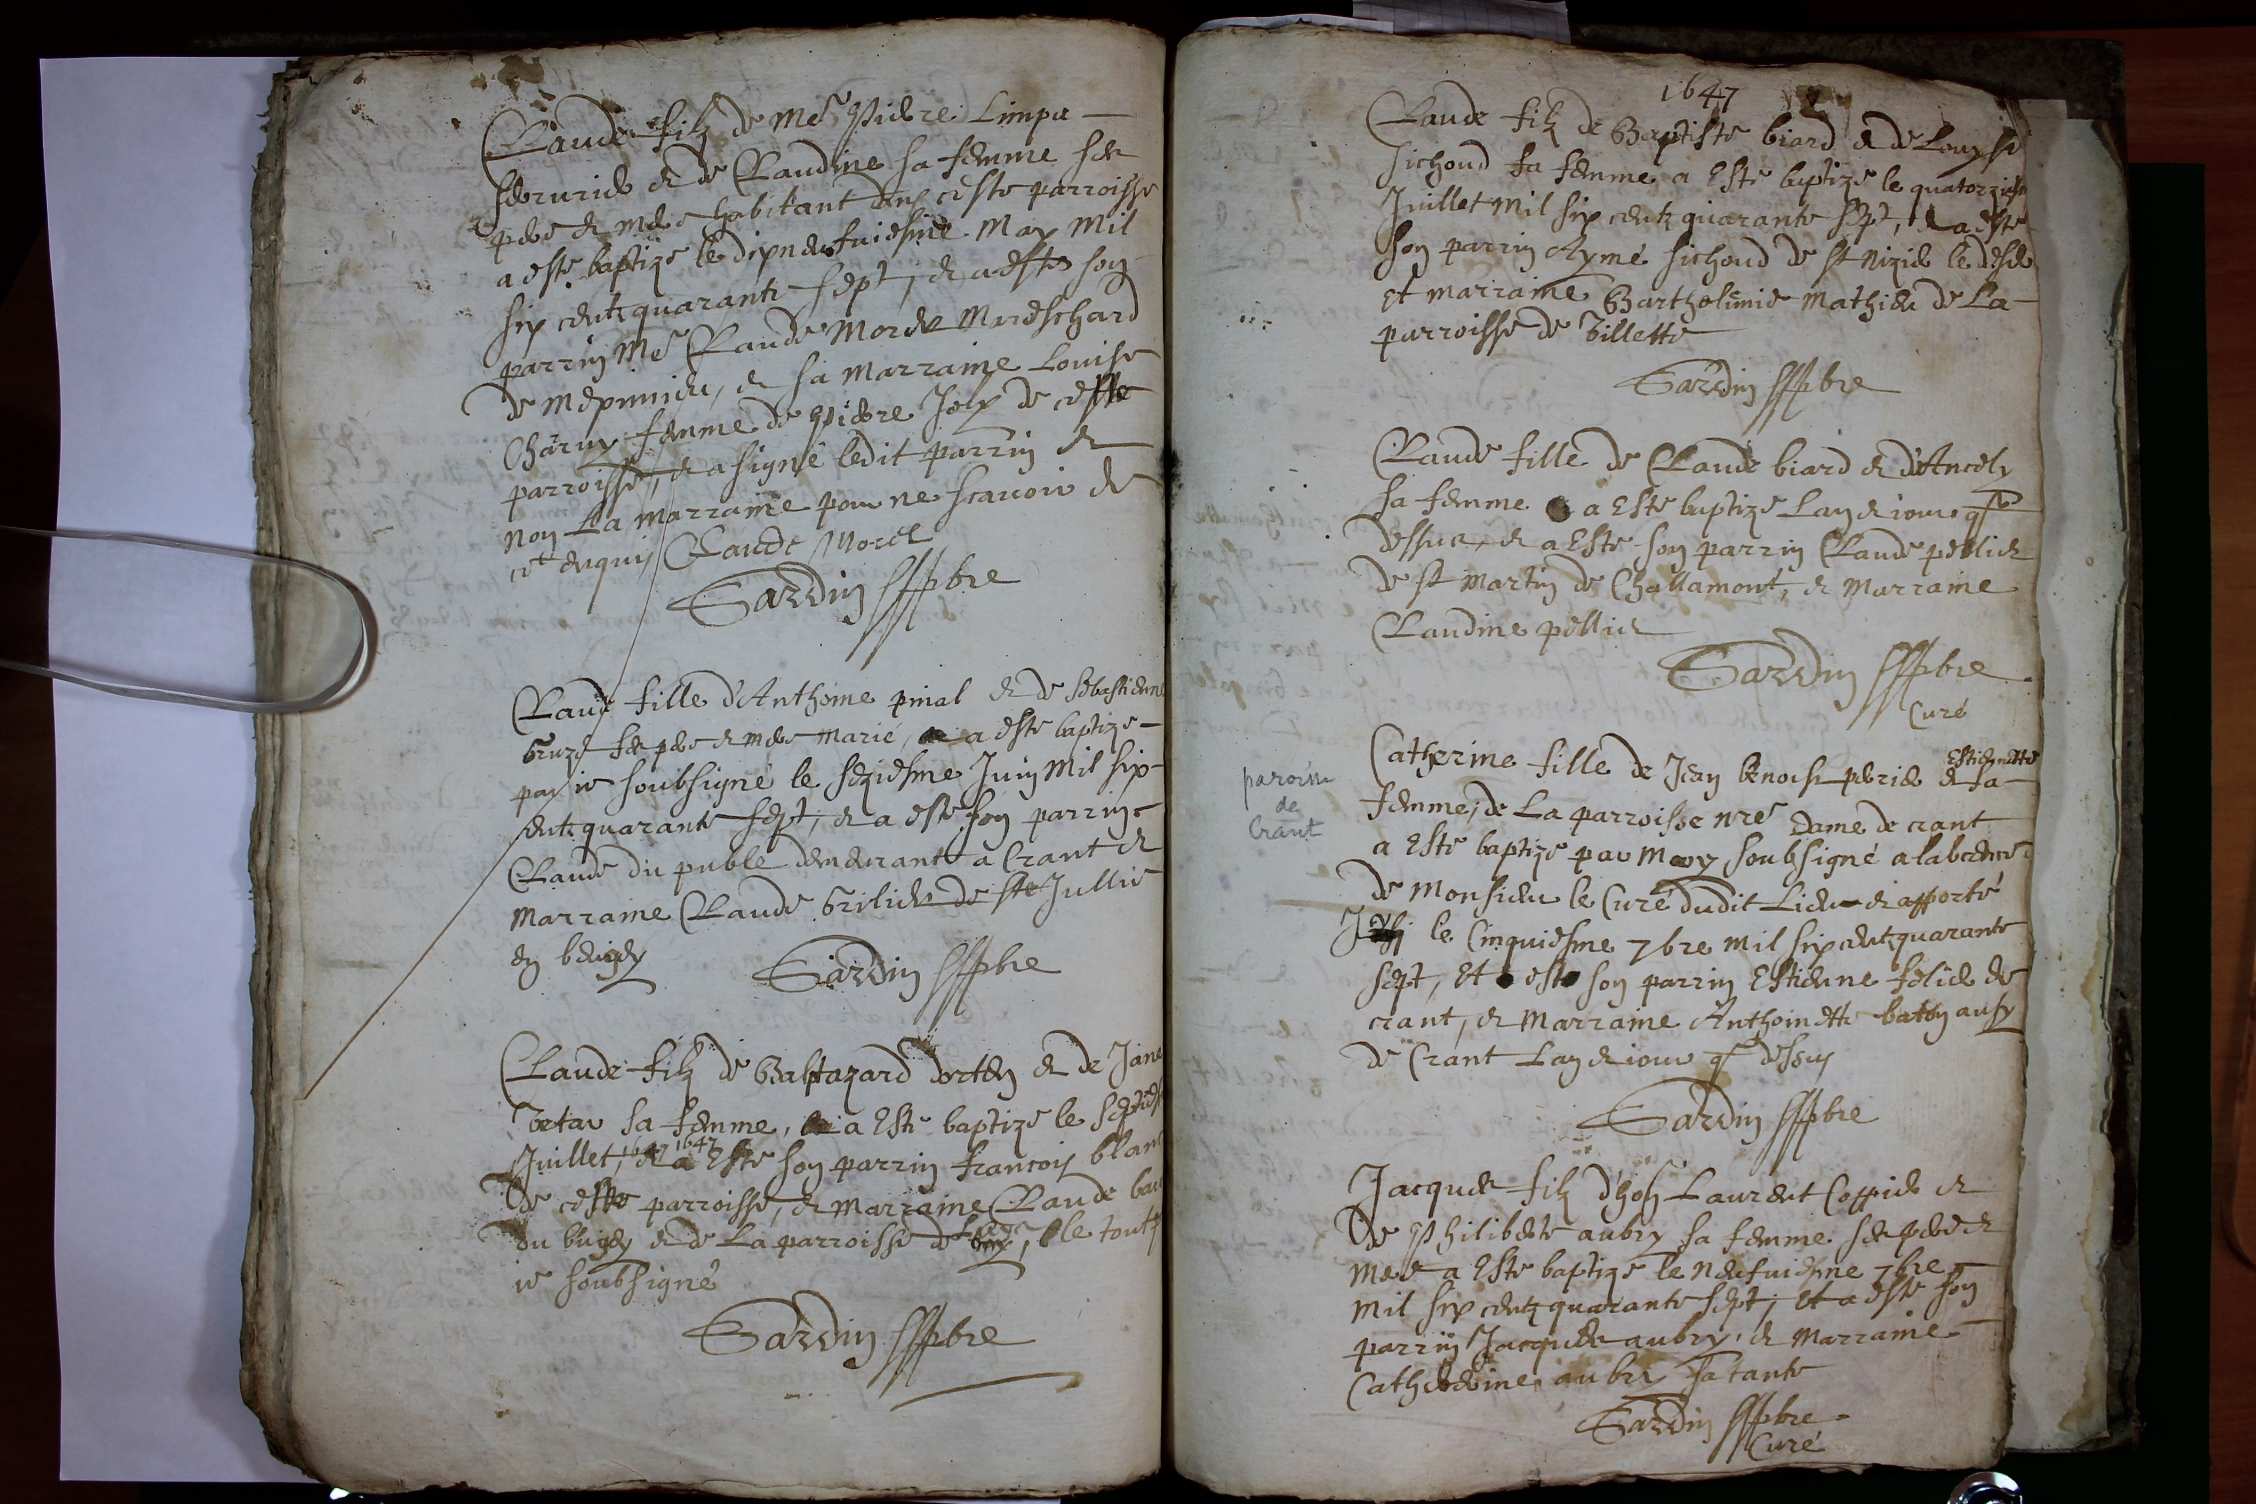 Claude filz de Me Pierre Limpa
serrurier et de Claudine sa femme ses
pere et mere habitant dans ceste parroisse
a esté baptizé le dixneufuiesme May mil
six centz quarante sept, et a esté son
parrin Me Claude Morel Mareschard
de meximieu, et sa marraine Louise
Charux femme de Pierre Joly de ceste
parroisse, et a signé ledit parrin et
non La marraine pour ne scauoir de
ce enquis Claude Morel
Sardin pbre
Claude fille d'Anthoine pinal et de sebastienne
pere et mere marié, a esté baptizé
par ie soubsigné le seziesme Juin mil six
centz quarante sept, et a esté son parrin
Claude du puble demeurant a Crant et
marraine Claude de ste Jullie
en beugey
Sardin pbre
Claude filz de Baltazard dorten et de Jane
sa femme, a Esté baptizé le septies
Juillet, 1647 1647 et a Esté son parrin francois blanc
de ceste parroisse, et marraine Claude
du bugey et de La parroisse de le tout
ie soubsigné
Sardin pbre
1647
Claude filz de Baptiste biard et de Louyse
sichoud sa femme a Esté baptizé le quatorzies
Juillet mil six centz quarante sept, et a esté
son parrin Aymé sichoud de st nizier le desert
Et marraine Bartholomie Mathieu de La
parroisse de Villette
Sardin pbre
Claude fille de Claude biard et d'Ancely
sa femme a Esté baptizé Lan et iour q
dessus, et a Esté son parrin Claude pellier
de st Martin de Challamont, et Marraine
Claudine pellier
Sardin pbre
Curé
Estiennette
Catherine fille de Jean benoist perier et sa
paroisse
de
Crant
femme, de La parroisse nre Dame de crant
a Esté baptizé par Moy soubsigné a labcence
de Monsieur le Curé dudit Lieu et apporté
le Cinquiesme 7bre mil six centz quarante
sept, Et esté son parrin Estienne felier de
crant, et Marraine Anthoinette baton ausy
de Crant Lan et iour q dessus
Sardin pbre
Jacques filz d'hon Laurent Coppier et
de Philiberte aubry sa femme ses pere et
mere a Esté baptizé le neufuiesme 7bre
mil six centz quarante sept, Et a esté son
parrin Jacques aubry, et marraine
Catherine aubry sa tante
Sardin pbre
Curé